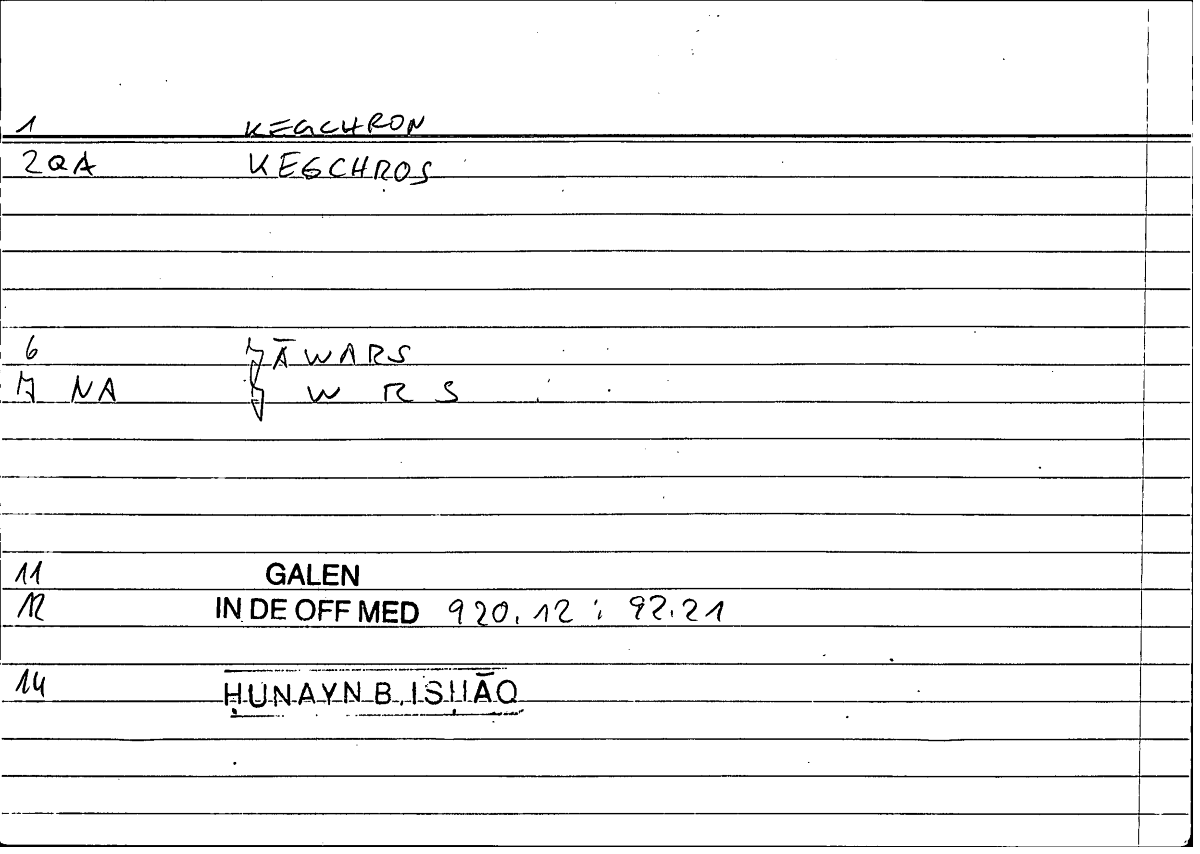 1 KEGCHRON
2QA KEGCHROS
6 ǦĀWARS
7 NA Ǧ W R S
11 GALEN
12 IN DE OFF MED 920.12 ; 92.21
14 ḤUNAYN B. ISḤĀQ